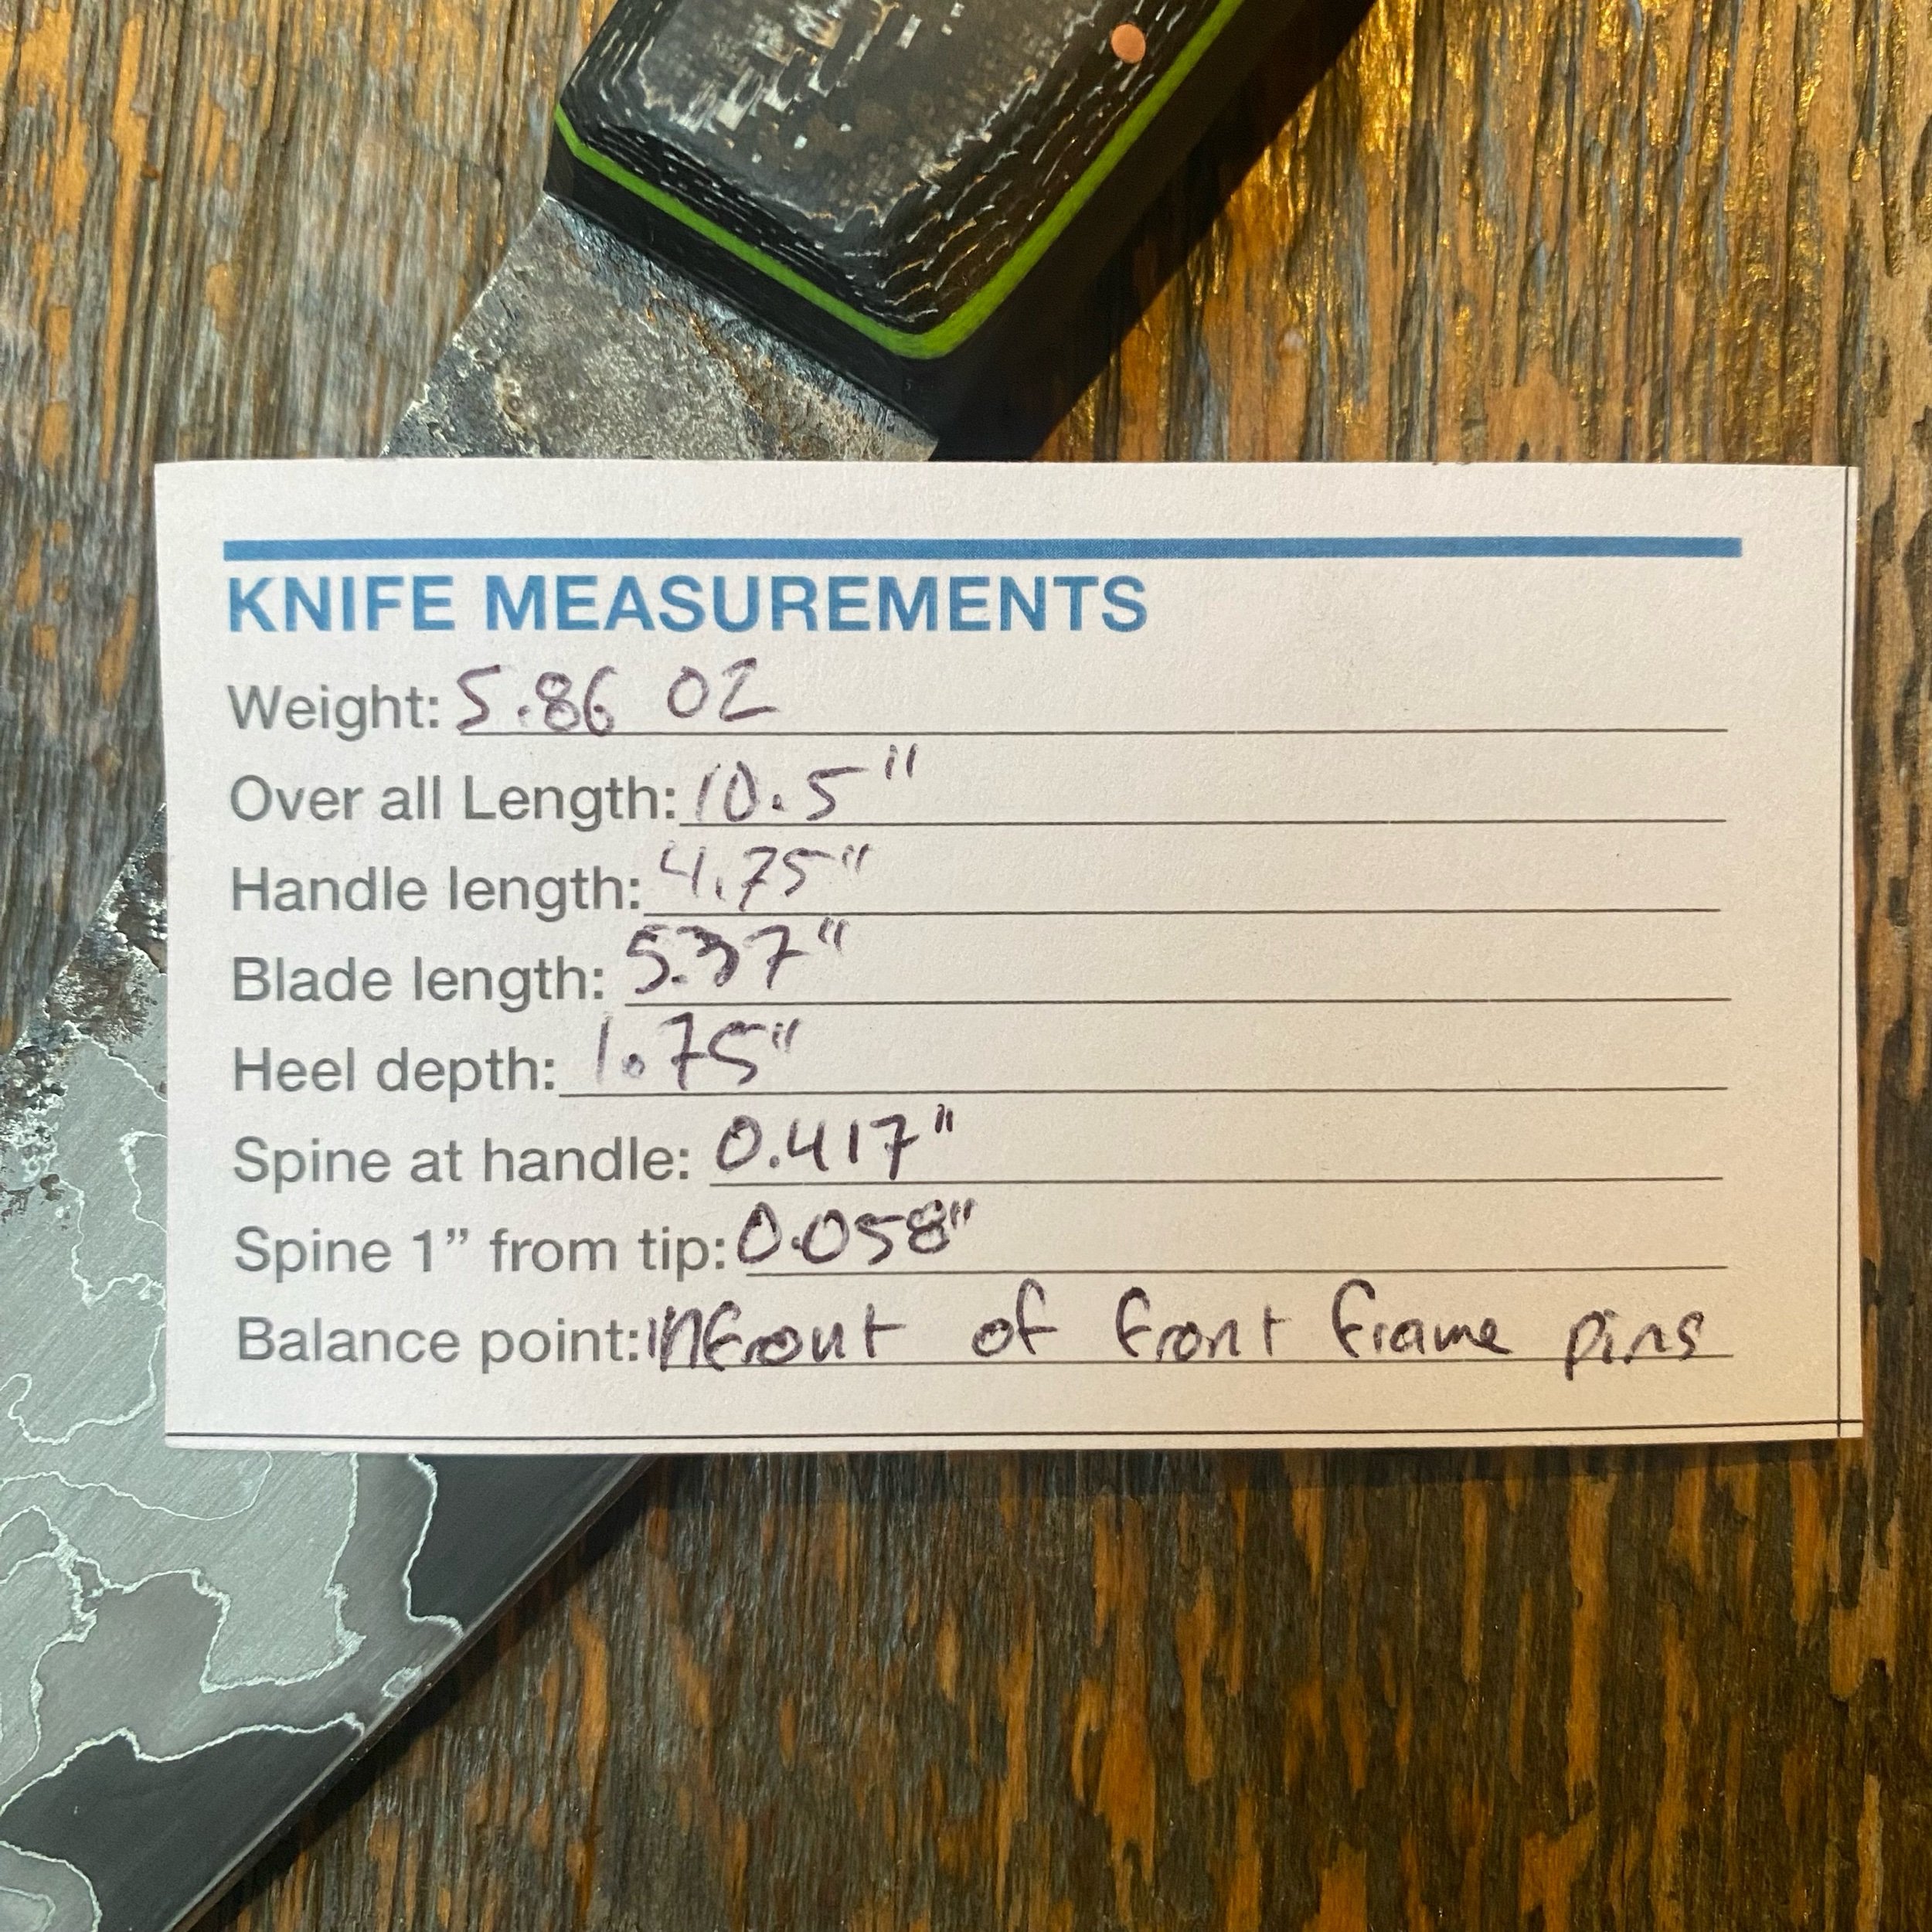 KNIFE MEASUREMENTS
Weight: 5.86 OZ
Over all Length: 10.5"
Handle length: 4.75"
Blade length: 5.37"
Heel depth: 1.75"
Spine at handle: 0.417"
Spine 1” from tip: 0.058"
Balance point: infront of front frame pins